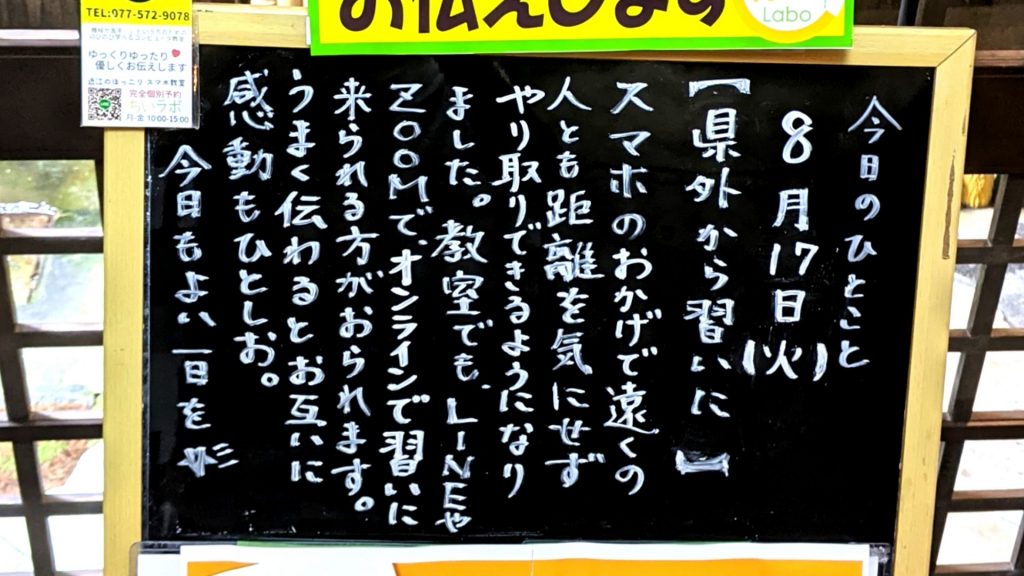 お伝えします
Labo
TEL:077-572-9078
ゆっくりゆったり
優しくお伝えします
近江のほっこりスマホ教室
完全個別予約
ちいラボ
月-金 10:00-15:00
今日のひとこと
8月17日(火)
【県外から習いに】
スマホのおかげで遠くの
人とも距離を気にせず
やり取りできるようになり
ました。教室でも、LINEや
ZOOMで、オンラインで習いに
来られる方がおられます。
うまく伝わるとお互いに
感動もひとしお。
今日もよい一日を